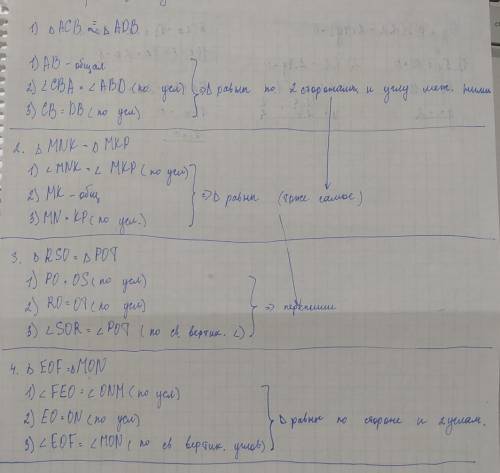 1) △ ACB = △ ADB
1) AB - общая
2) ∠CBA = ∠ABD (по усл)
3) CB = DB (по усл)
} ⇒ △ равны по 2 сторонам и углу меж. ними
2. △ MNK = △ MKP
1) ∠MNK = ∠ MKP (по усл)
2) MK - общ
3) MN = KP (по усл.)
} ⇒ △ равны (тоже самое)
3. △ RSO = △ POT
1) PO = OS (по усл)
2) RO = OT (по усл)
3) ∠SOR = ∠POT (по св. вертик. ∠)
} ⇒ перепиши
4. △ EOF = △ MON
1) ∠FEO = ∠ONM (по усл)
2) EO = ON (по усл)
3) ∠EOF = ∠MON (по св вертик. углов)
} △ равны по стороне и 2 углам.